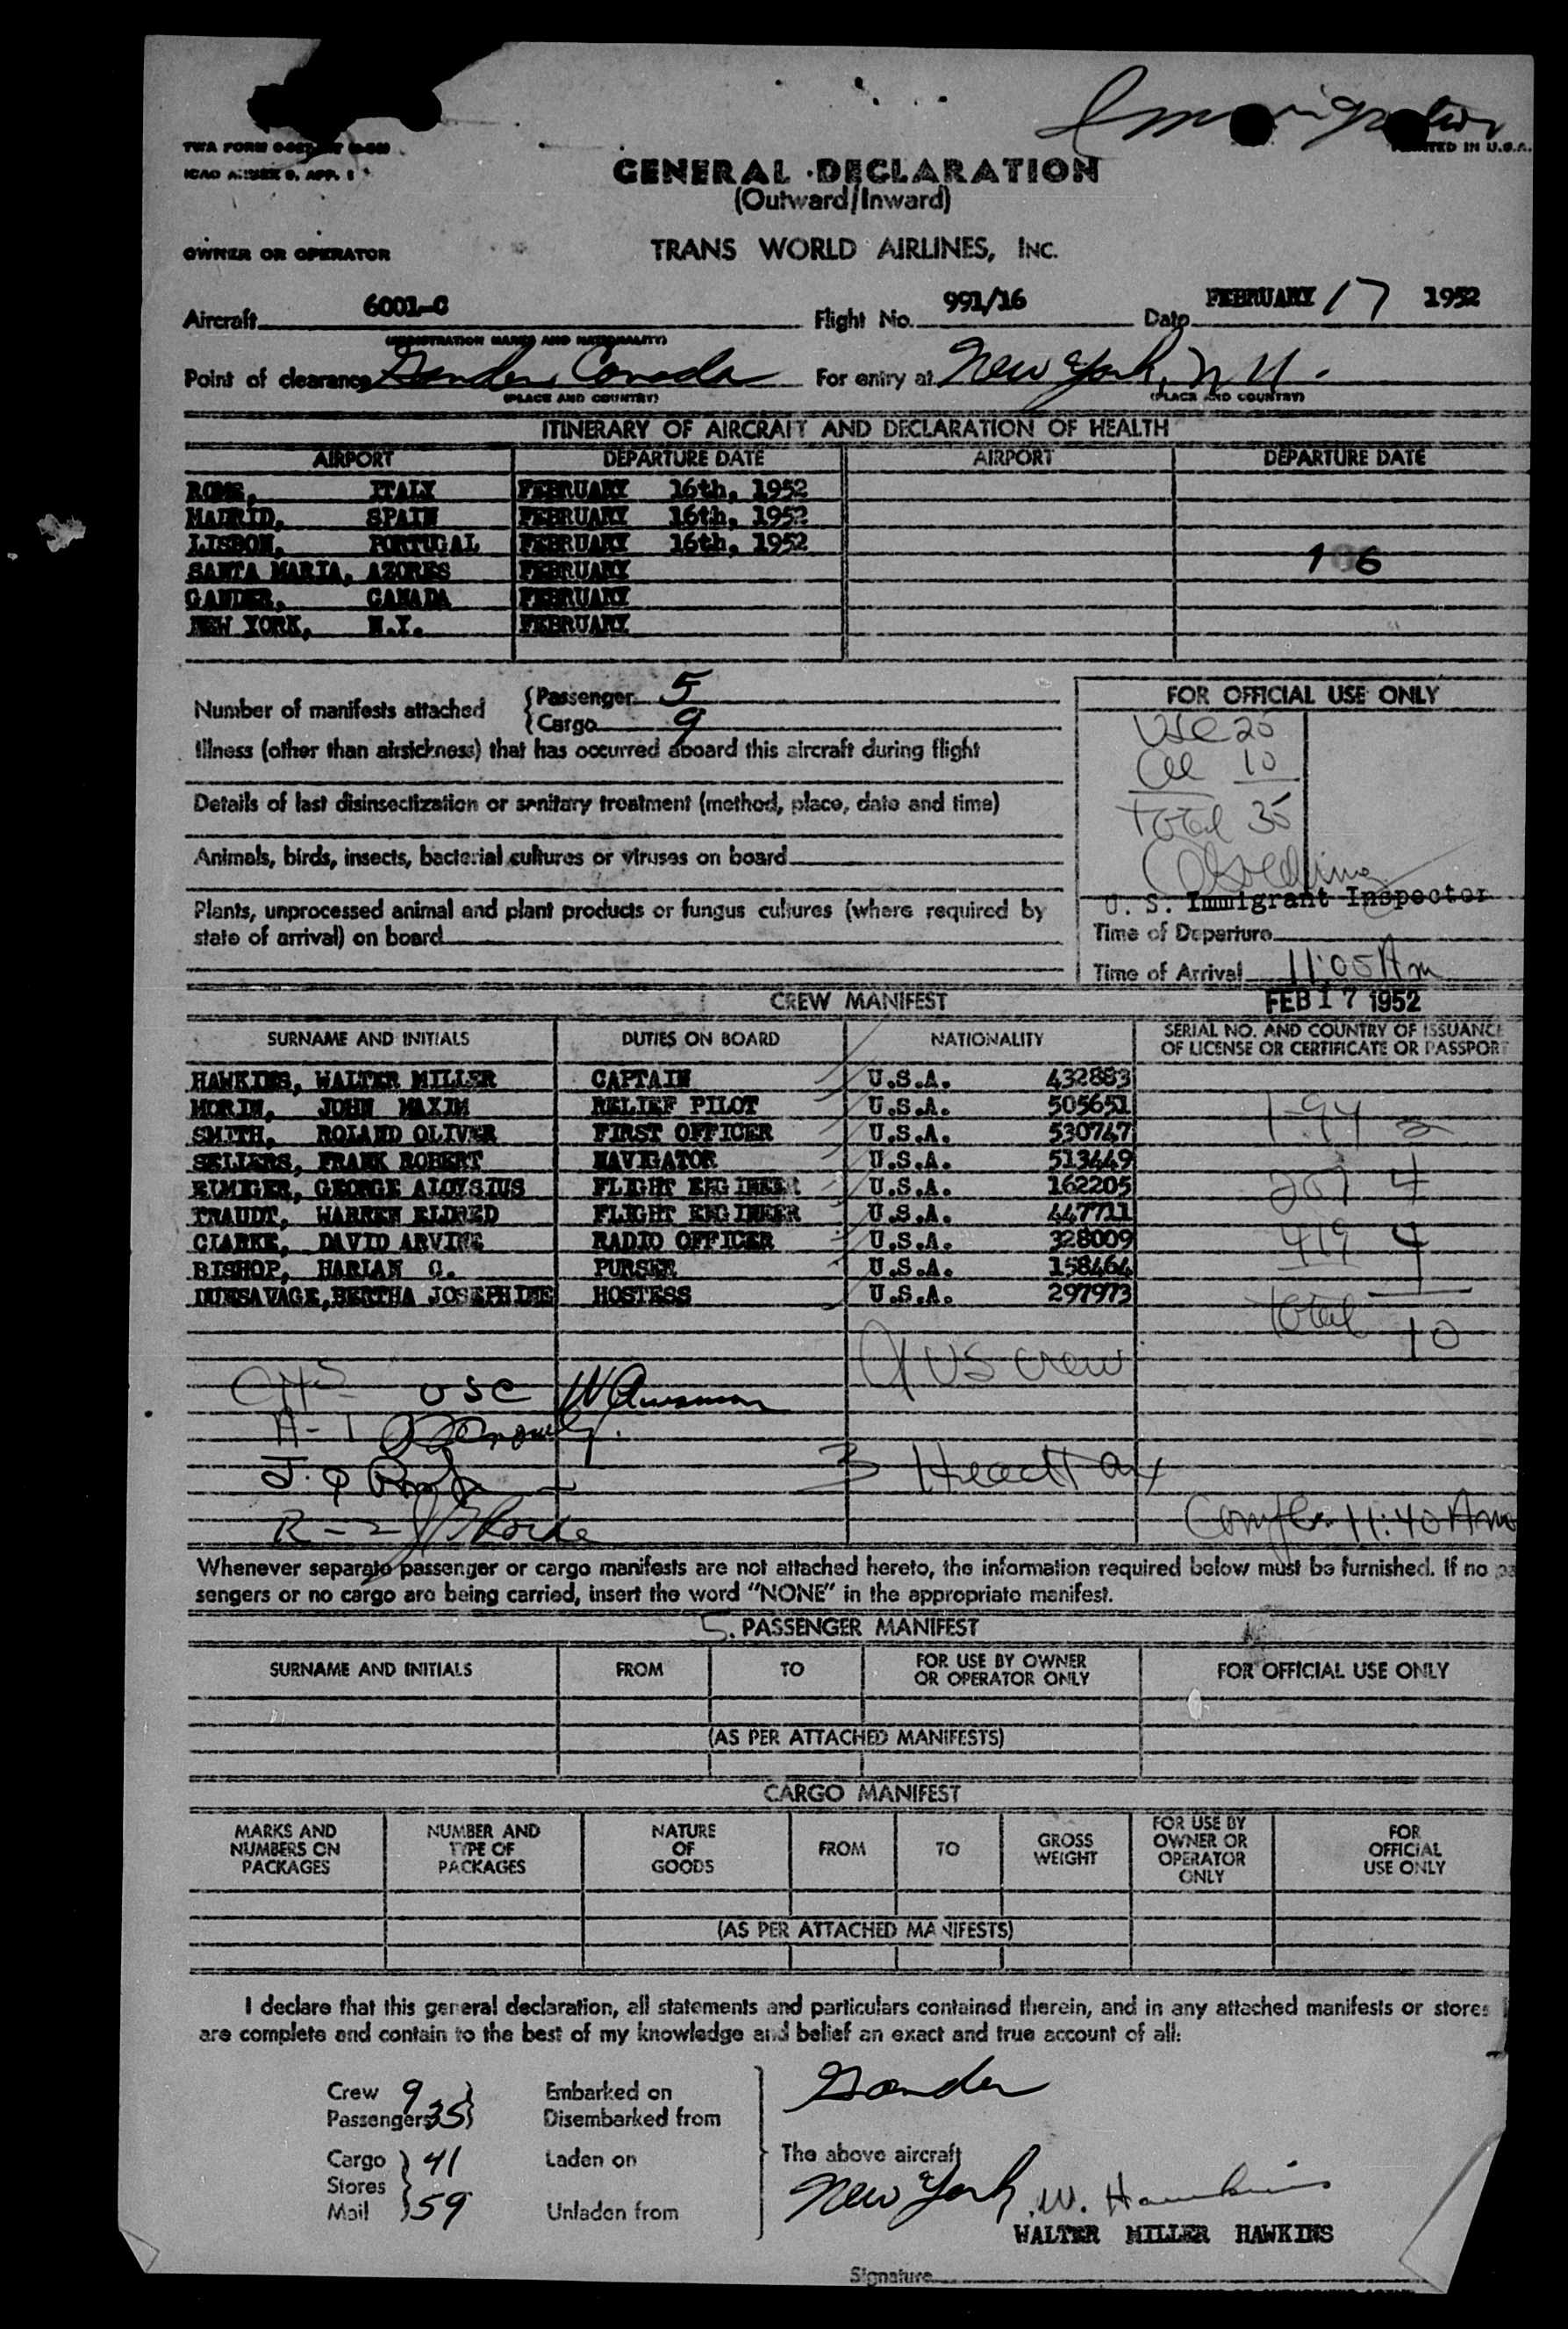 Immigration
TWA FORM
PRINTED IN U.S.A.
ICAO ANNEX 9, APP. 1
GENERAL DECLARATION
(Outward/Inward)
OWNER OR OPERATOR
TRANS WORLD AIRLINES, INC.
Aircraft 6001-C Flight No. 991/16 Date FEBRUARY 17 1952
(REGISTRATION MARKS AND NATIONALITY)
Point of clearance Gander, Canada For entry at New York, N.Y.
(PLACE AND COUNTRY) (PLACE AND COUNTRY)
ITINERARY OF AIRCRAFT AND DECLARATION OF HEALTH
AIRPORT DEPARTURE DATE AIRPORT DEPARTURE DATE
ROME, ITALY FEBRUARY 16th, 1952
MADRID, SPAIN FEBRUARY 16th, 1952
LISBON, PORTUGAL FEBRUARY 16th, 1952
SANTA MARIA, AZORES FEBRUARY
GANDER, CANADA FEBRUARY
NEW YORK, N.Y. FEBRUARY
106
Number of manifests attached
Passenger 5
Cargo 9
Illness (other than airsickness) that has occurred aboard this aircraft during flight
Details of last disinsectization or sanitary treatment (method, place, date and time)
Animals, birds, insects, bacterial cultures or viruses on board
Plants, unprocessed animal and plant products or fungus cultures (where required by
state of arrival) on board
FOR OFFICIAL USE ONLY
USC 25
10
Total 35
U. S. Immigrant Inspector
Time of Departure
Time of Arrival 11:05 Am
FEB 17 1952
CREW MANIFEST
SURNAME AND INITIALS DUTIES ON BOARD NATIONALITY SERIAL NO. AND COUNTRY OF ISSUANCE
OF LICENSE OR CERTIFICATE OR PASSPORT
HAWKINS, WALTER MILLER CAPTAIN U.S.A. 432883
MORIN, JOHN MAXIM RELIEF PILOT U.S.A. 505651
SMITH, ROLAND OLIVER FIRST OFFICER U.S.A. 530747
SELLERS, FRANK ROBERT NAVIGATOR U.S.A. 513449
RIMIGER, GEORGE ALOYSIUS FLIGHT ENGINEER U.S.A. 162205
TRAUDT, WARREN ELDRED FLIGHT ENGINEER U.S.A. 447711
CLARKE, DAVID ARVINE RADIO OFFICER U.S.A. 328009
BISHOP, HARLAN C. PURSER U.S.A. 158464
DUNSAVAGE, BERTHA JOSEPHINE HOSTESS U.S.A. 297973
I-94 2
257 4
419 4
Total 10
9 US crew
USC
3 Head Tax
Comp. 11:40 Am
Whenever separate passenger or cargo manifests are not attached hereto, the information required below must be furnished. If no pas
sengers or no cargo are being carried, insert the word "NONE" in the appropriate manifest.
5. PASSENGER MANIFEST
SURNAME AND INITIALS FROM TO FOR USE BY OWNER
OR OPERATOR ONLY FOR OFFICIAL USE ONLY
(AS PER ATTACHED MANIFESTS)
CARGO MANIFEST
MARKS AND
NUMBERS ON
PACKAGES
NUMBER AND
TYPE OF
PACKAGES
NATURE
OF
GOODS
FROM
TO
GROSS
WEIGHT
FOR USE BY
OWNER OR
OPERATOR
ONLY
FOR
OFFICIAL
USE ONLY
(AS PER ATTACHED MANIFESTS)
I declare that this general declaration, all statements and particulars contained therein, and in any attached manifests or stores
are complete and contain to the best of my knowledge and belief an exact and true account of all:
Crew 9
Passengers 35
Embarked on
Disembarked from
Gander
Cargo 41
Stores
Mail 59
Laden on
Unladen from
The above aircraft
New York W. Hawkins
WALTER MILLER HAWKINS
Signature